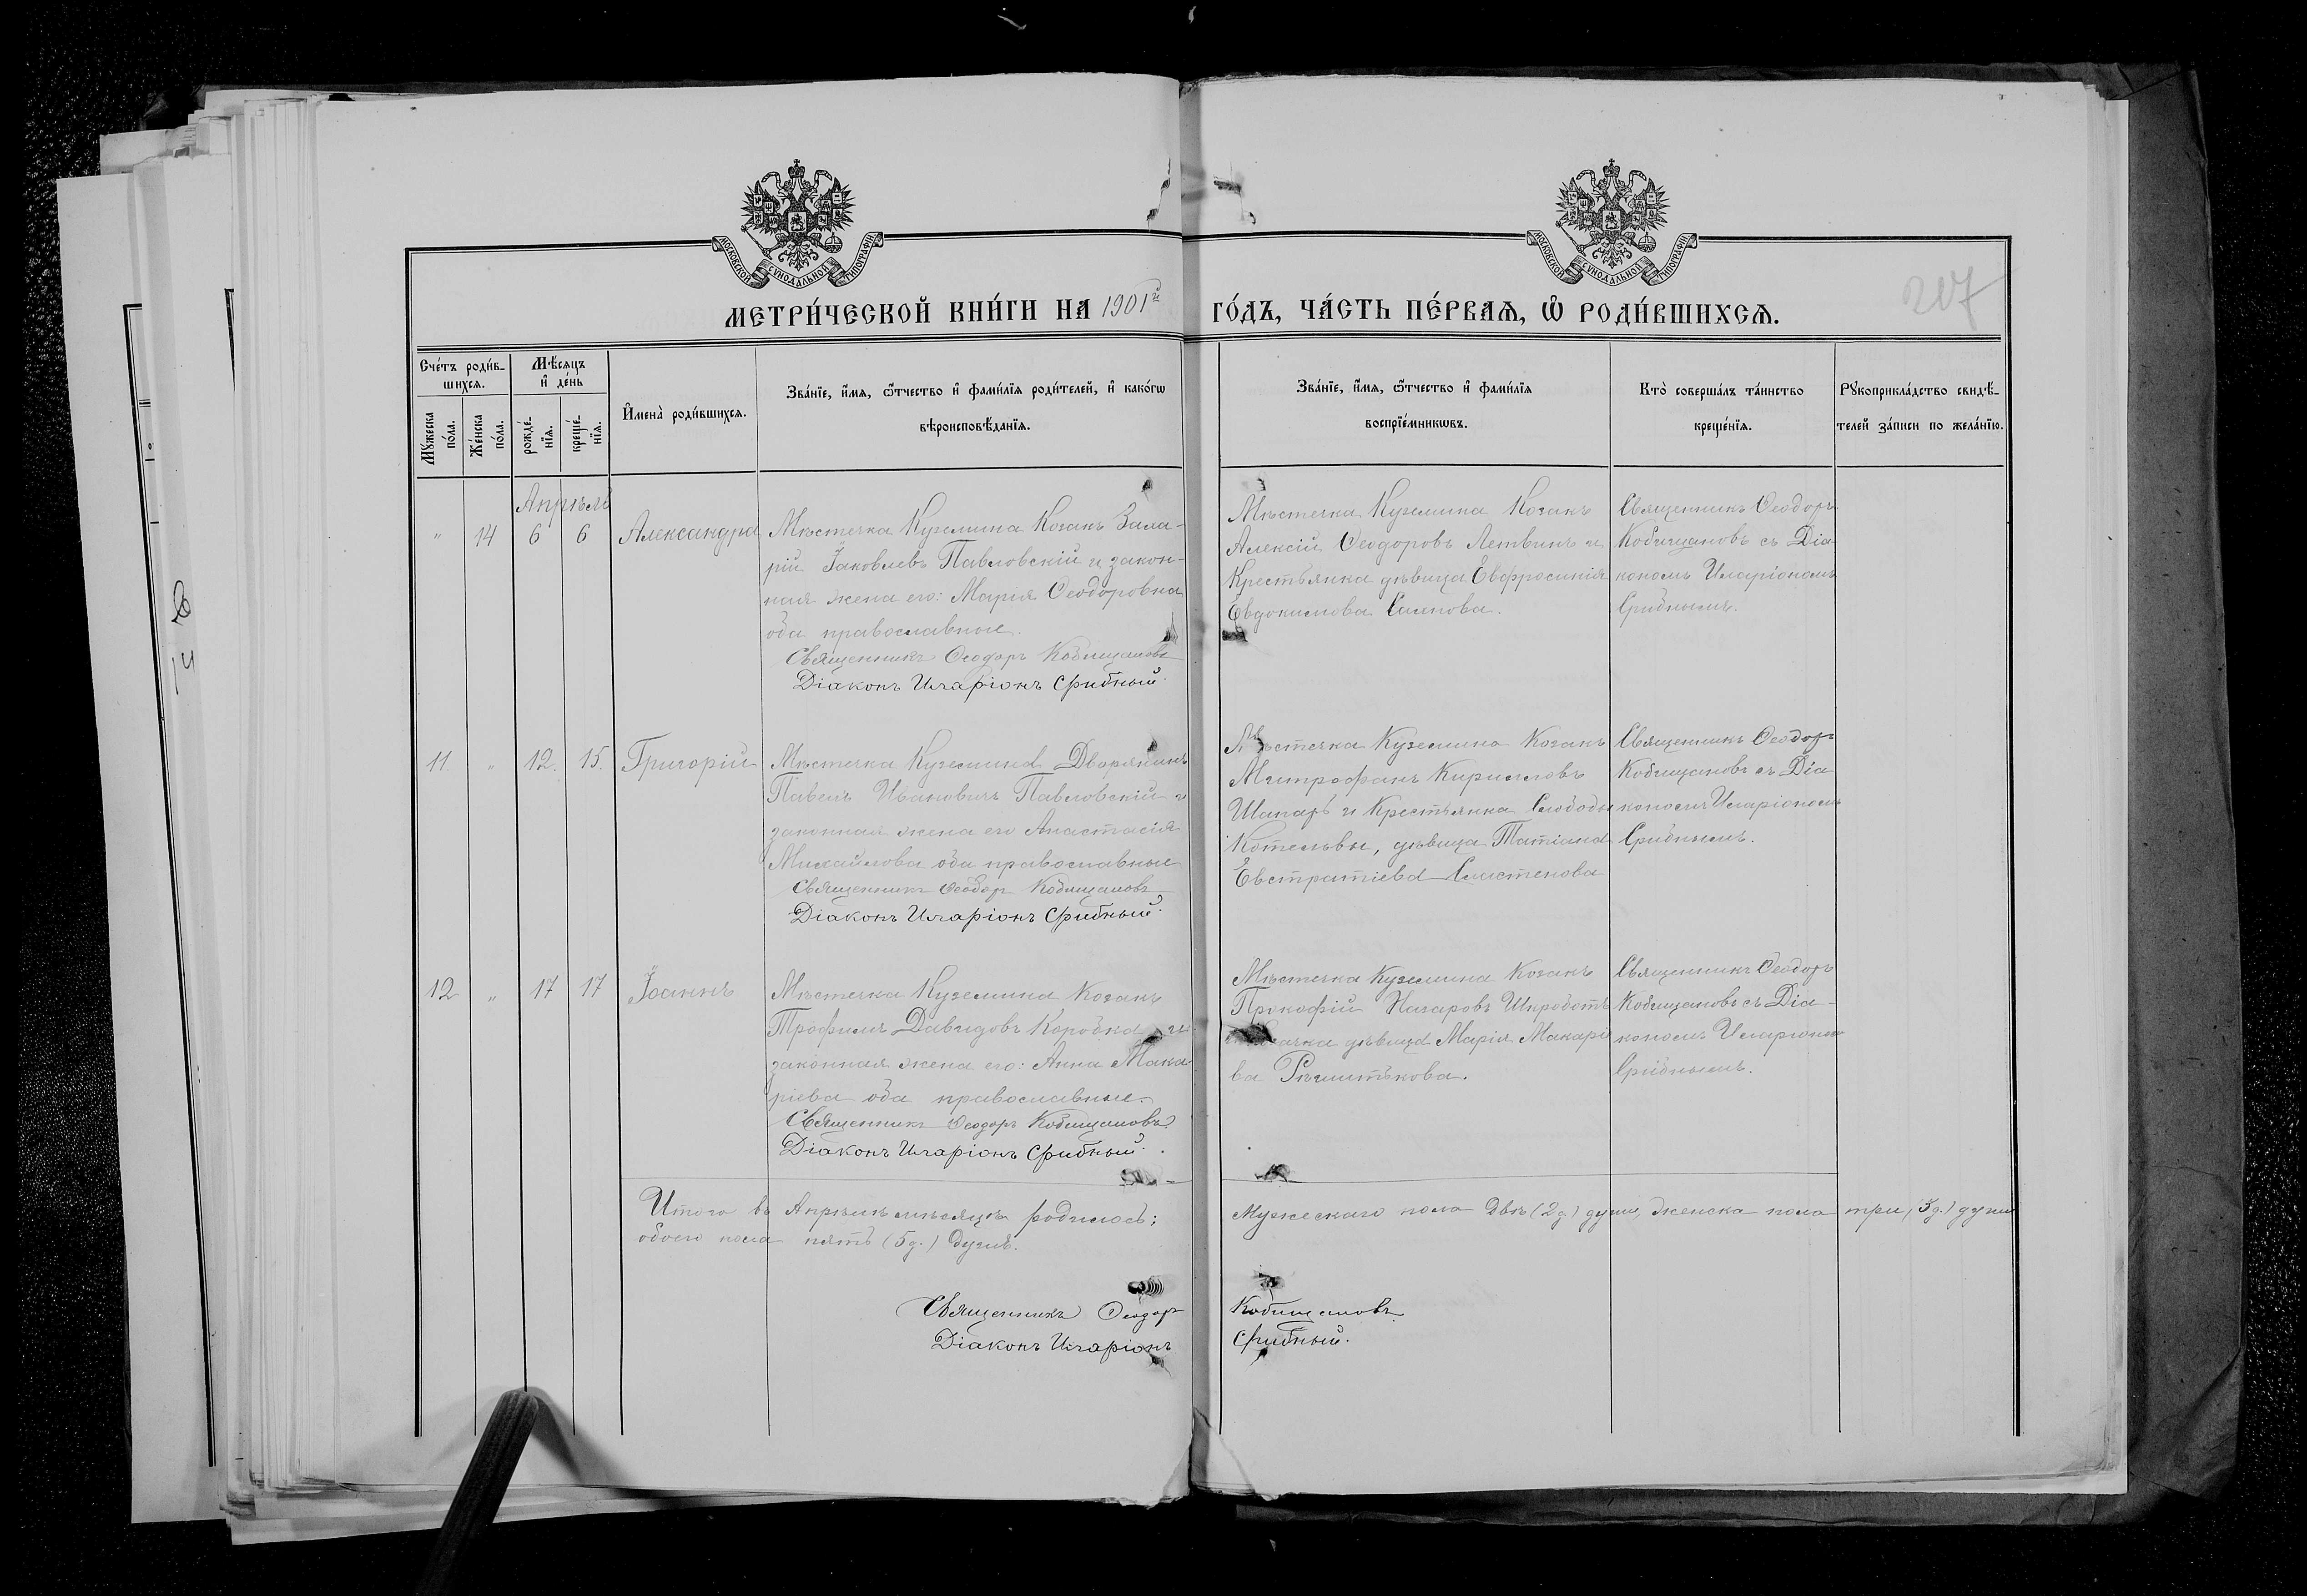 МОСКОВСКОЙ СѴНОДАЛЬНОЙ ТИПОГРАФІИ
МОСКОВСКОЙ СѴНОДАЛЬНОЙ ТИПОГРАФІИ
МЕТРИ́ЧЕСКОЙ КНИ́ГИ НА 1901й ГО́ДЪ, ЧА́СТЬ ПЕ́РВАѦ, Ѽ РОДИ́ВШИХСѦ.
207
Сче́тъ роди́в-
шихсѧ.
Мѣ́сѧцъ
и҆ де́нь
Мꙋ́жеска
по́ла.
Же́нска
по́ла.
рожде́-
нїѧ.
креще́-
нїѧ.
И҆мена̀ роди́вшихсѧ.
Зва́нїе, и҆́мѧ, ѻ҆́тчество и҆ фами́лїѧ роди́телей, и҆ како́гѡ
вѣроисповѣ́данїѧ.
Зва́нїе, и҆́мѧ, ѻ҆́тчество и҆ фами́лїѧ
воспрїе́мникѡвъ.
Кто̀ соверша́лъ та́инство
креще́нїѧ.
Рꙋкоприкла́дство свидѣ́-
телей за́писи по жела́нїю.
Апрѣль
" 14 6 6 Александра
Мѣстечка Куземина Козакъ
рій Іаковлевъ Павловскій и закон-
ная жена его: Марія Ѳеодоровна
оба православные.
Священникъ Ѳеодоръ Кобищановъ
Діаконъ Иларіонъ Срибный.
Мѣстечка Куземина Козакъ
Алексій Ѳеодоровъ Летвинъ и
Крестьянка дѣвица Евфросинія
Евдокимова
Священникъ Ѳеодоръ
Кобищановъ съ Діа-
кономъ Иларіономъ
Срибнымъ.
11 " 12. 15. Григорій
Мѣстечка Куземина Дворянинъ
Павелъ Ивановичъ Павловскій и
законная жена его Анастасія
Михайлова оба православные
Священникъ Ѳеодоръ Кобищановъ
Діаконъ Иларіонъ Срибный.
Мѣстечка Куземина Козакъ
Митрофанъ Кирилловъ
Шапаръ и Крестьянка Слободы
Котельвы, дѣвица Татіана
Евстратіева Сластенова
Священникъ Ѳеодоръ
Кобищановъ съ Діа
кономъ Иларіономъ
Срибнымъ.
12 " 17 17 Іоаннъ
Мѣстечка Куземина Козакъ
Трофимъ Давидовъ Коробка и
законная жена его: Анна Мака-
ріева оба православные.
Священникъ Ѳеодоръ Кобищановъ
Діаконъ Иларіонъ Срибный.
Мѣстечка Куземина Козакъ
Прокофій Назаровъ Шкроботъ
дѣвица Марія Макаріе
ва Рѣшитькова.
Священникъ Ѳеодоръ
Кобищановъ съ Діа-
кономъ Иларіономъ
Срибнымъ.
Итого въ Апрѣлѣ мѣсяцѣ родилось: мужескаго пола двѣ (2 д.) души, женска пола три (3 д.) души
обоего пола пять (5 д.) душъ.
Священникъ Ѳеодоръ Кобищановъ
Діаконъ Иларіонъ Срибный.